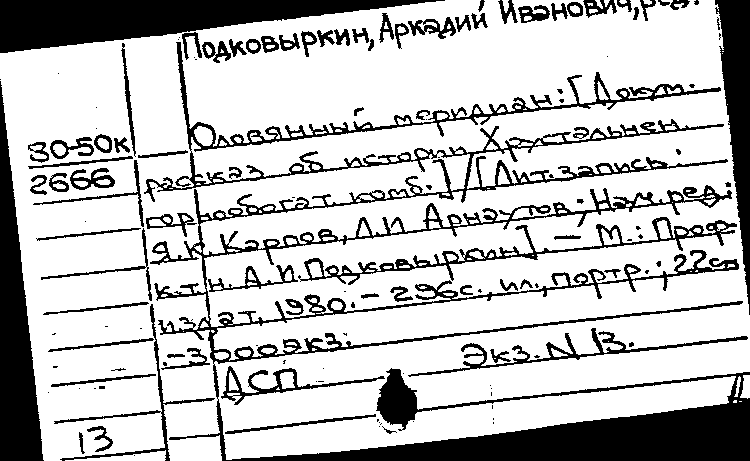 Подковыркин, Аркадий Иванович, ред.
Оловянный меридиан: [Докум.
30-50к
рассказ об истории Хрустальнен.
2666
горнообогат. комб.] / [Лит. запись:
Я.К. Карпов, Л.И Арнаутов; Науч. ред.:
к.т.н. А.И. Подковыркин]. — М.: Проф-
издат, 1980. - 296с., ил., портр.; 22см
.-3000экз.
ДСП
Экз. N В.
13